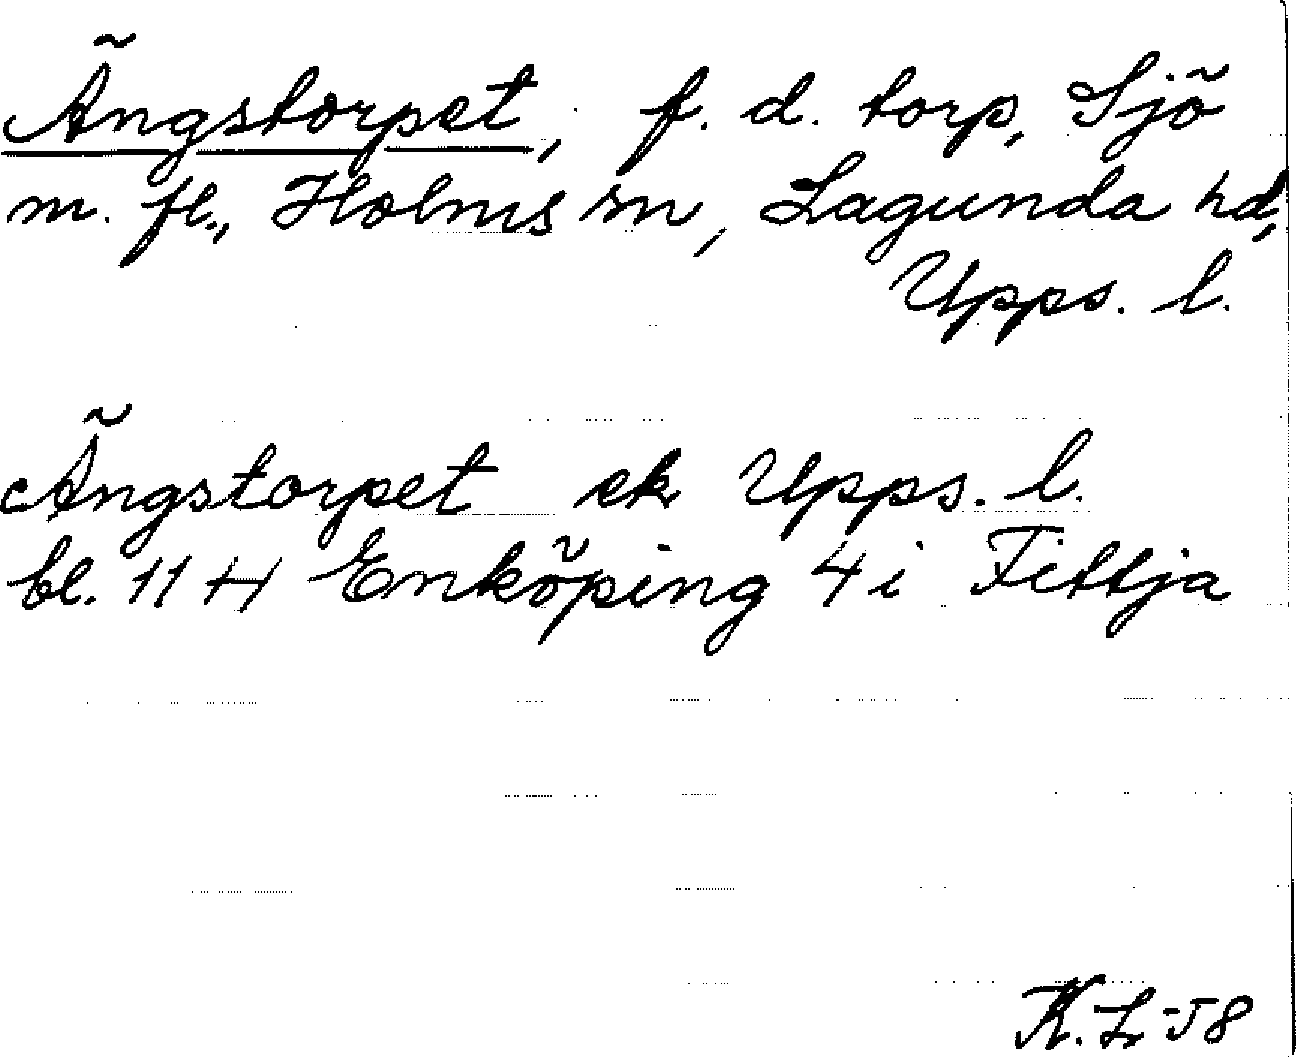 Ängstorpet, f. d. torp, Sjö
m. fl., Holms sn, Lagunda hd,
Upps. l.
Ängstorpet ek Upps. l.
bl. 11 H Enköping 4 i Fittja
K. L -58